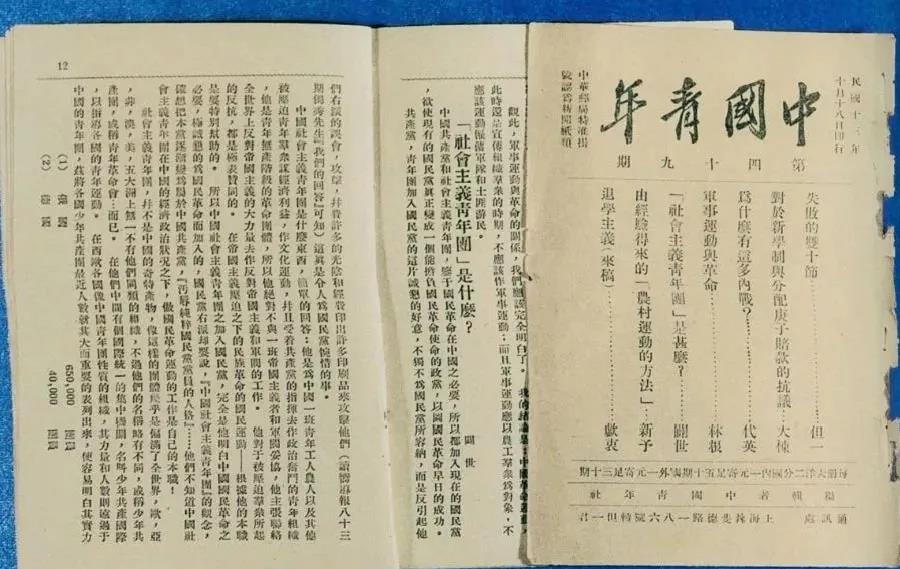 民國十三年
十月十八日印行
中國青年
中華郵局特准掛
號認爲新聞紙類
第四十九期
失敗的雙十節……但一
對於新學制與分配庚子賠款的抗議……大悚
爲什麼有這多內戰?……代英
軍事運動與革命……林根
「社會主義青年團」是甚麼?……闢世
由經驗得來的「農村運動的方法」……新予
退學主義(來稿)……獻衷
每冊大洋二分國內一元寄足五十期國外一元寄足三十期
編輯者中國青年社
通訊處上海辣斐德路一八六號轉但一君
觀此,軍事運動與革命的關係,我們應該完全明白了。我的結論是:中國革命運動,
此時還是宣傳組織羣衆的時期,不應該作軍事運動;而且軍事運動應以農工羣衆爲對象,不
應該運動僱傭軍隊和土匪游民。
「社會主義青年團」是什麼? 闢世
中國共產黨和社會主義青年團,鑒于國民革命在中國之必要,所以都加入現在的國民黨
,欲使現有的國民黨眞正變成一個能擔負國民革命使命的政黨,以圖國民革命早日的成功。
共產黨,青年團加入國民黨的這片誠懇的好意,不獨不爲國民黨所容納,而是反引起他
12
們右派的誤會,攻擊,幷費許多的光陰和經費印出許多印刷品來攻擊他們(請嚮導報八十三
期獨秀先生『我們的回答』可知)這眞是令人爲國民黨惋惜的事。
中國社會主義青年團是什麼東西,簡單的回答:他是爲中國一班青年工人農人以及其他
被壓迫青年羣衆謀經濟利益,作文化運動,幷且受着共產黨的指揮去作政治奮鬥的青年組織
,他是青年無產階級的革命團體,所以他絕對不與一班帝國主義者和軍閥妥協,他主張聯絡
全世界上反對帝國主義的大力量去作反對帝國主義和軍閥的工作。他對于被壓迫羣衆所起
的反抗,都是極表贊同的。在帝國主義壓迫之下的民族革命的國民運動——根據他的本職
是要特別幫助的。所以中國社會主義青年團之加入國民黨,完全是他明白中國國民革命之
必要,極誠懇的爲國民革命而加入的,國民黨右派却要說,『中國社會主義青年團』的觀念,
確想把本黨逐漸變爲屬於中國共產黨,『污辱純粹國民黨黨員的人格』……他們不知道中國社
會主義青年團在中國的經濟政治狀况之下,做國民革命運動的工作是自己的本職!
社會主義青年團,幷不是中國的奇特產物,像這樣的團體幾乎是偏滿了全世界,歐,亞
,非,澳,美,五大洲上無一不有他們同類的組織,不過他們的名稱略有不同,或稱少年共
產團,或稱青年革命會…而已。在他們中間有個國際統一的集中機關,名呼少年共產國際
,以指導各國的青年運動。在西歐各國像中國青年團性質的組織,其力量和人數則遠過于
中國的青年團,茲將各國少年共產團最近人數就其大而重要的表列出來,使容易明白其實力
(1) 650,000 團員
(2) 40,000 團員